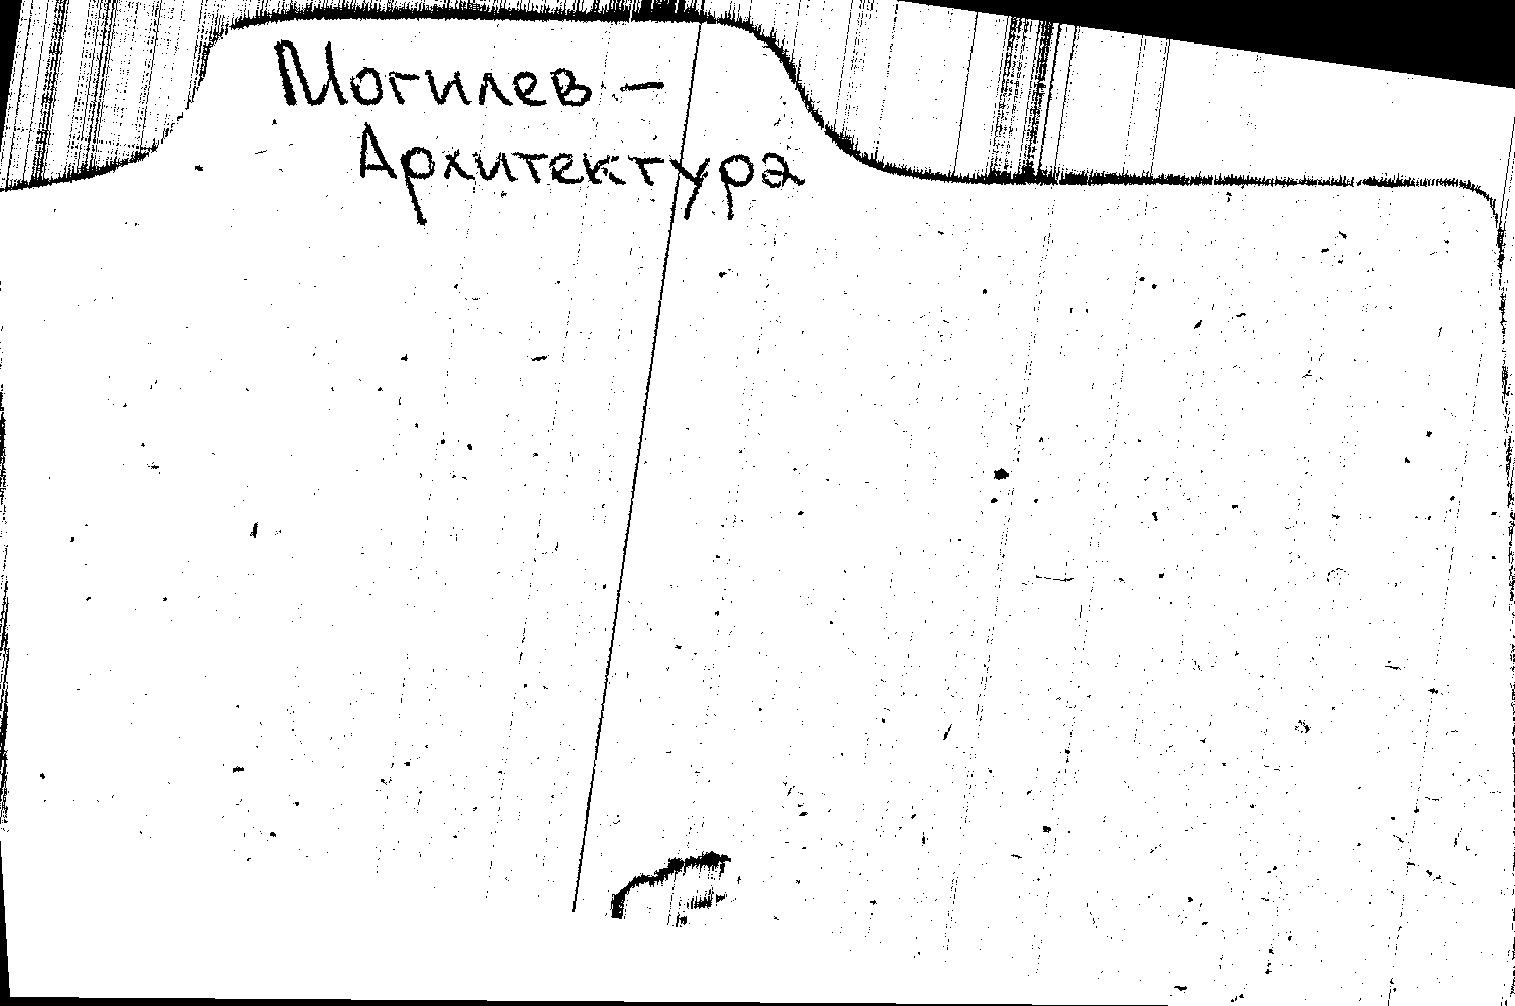 Могилев –
Архитектура